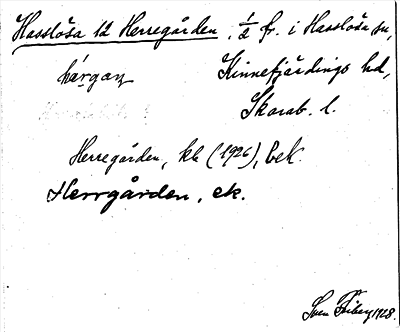 Hasslösa 12 Herregården, 1/2 fr. i Hasslösa sn,
hárgaɳ Kinnefjärdings hd,
Skarab. l.
Herregården, kb (1926), bek.
Herrgården, ek.
Sven Friberg 1928.